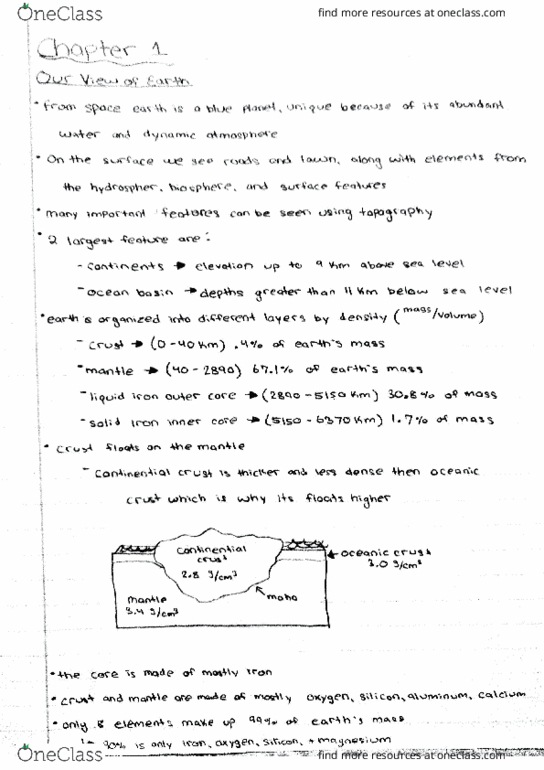 OneClass
find more resources at oneclass.com
Chapter 1
Our View of Earth
• from space earth is a blue planet, unique because of its abundant
water and dynamic atmosphere
• On the surface we see roads and lawn, along with elements from
the hydrospher, biosphere, and surface features
• many important features can be seen using topography
• 2 largest feature are:
- continents → elevation up to 9 km above sea level
- ocean basin → depths greater than 11 km below sea level
• earth is organized into different layers by density (mass/volume)
- crust → (0-40 km) .4% of earth's mass
- mantle → (40-2890) 67.1% of earth's mass
- liquid iron outer core → (2890-5150 km) 30.8% of mass
- solid iron inner core → (5150-6370 km) 1.7% of mass
• crust floats on the mantle
- continental crust is thicker and less dense then oceanic
crust which is why its floats higher
continental
crust
2.8 g/cm³
← oceanic crust
3.0 g/cm³
mantle
3.4 g/cm³
moho
• the core is made of mostly iron
• crust and mantle are made of mostly oxygen, silicon, aluminum, calcium
• only 8 elements make up 99% of earth's mass
90% is only iron, oxygen, silicon, + magnesium
OneClass
find more resources at oneclass.com